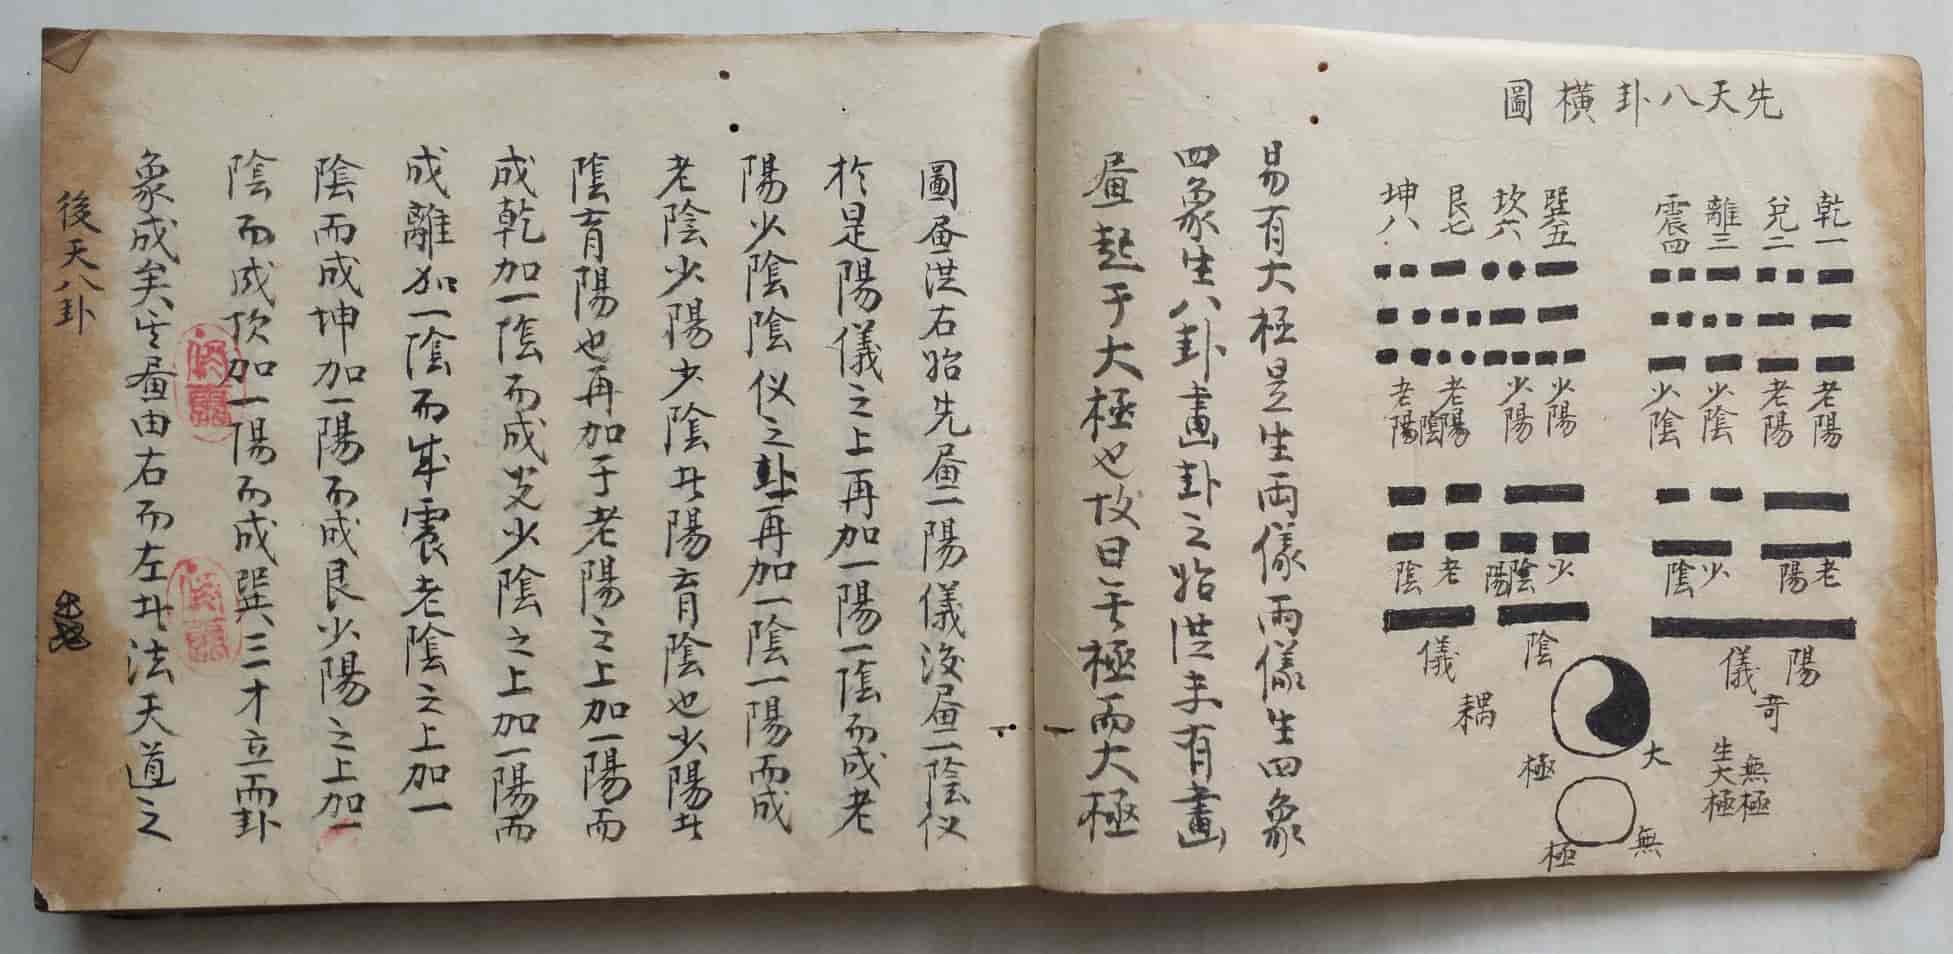 先天八卦橫圖
乾一
兌二
離三
震四
巽五
坎六
艮七
坤八
老陽
老陽
少陰
少陰
少陽
少陽
老
老
老陽
少陰
少
老陰
陽儀
陰儀
奇
耦
大極
無極
生大極
無極
易有大極是生両儀両儀生四象
四象生八卦畫卦之始洪未有畫
昼起于大極也故曰无極而大極
圖昼洪右始先昼一陽儀後昼一陰仪
於是陽儀之上再加一陽一陰而成老
陽少陰陰仪之卦再加一陰一陽而成
老陰少陽少陰此陽育陰也少陽此
陰育陽也再加于老陽之上加一陽而
成乾加一陰而成兌少陰之上加一陽而
成離加一陰而成震老陰之上加一
陰而成坤加一陽而成艮少陽之上加一
陰而成坎加一陽而成巽三才立而卦
象成矣其昼由右而左此法天道之
後天八卦